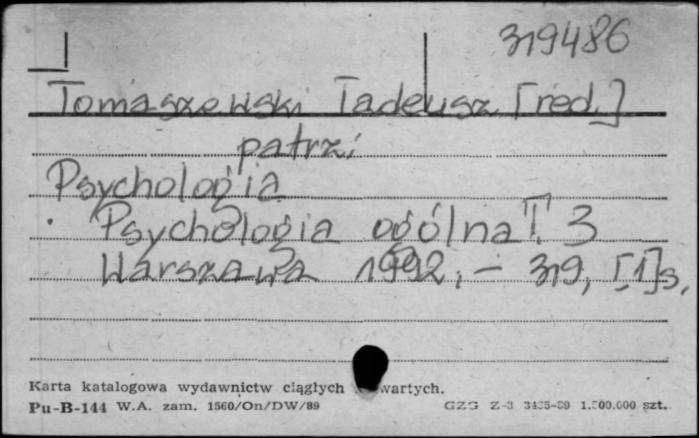 319486
Tomaszewski Tadeusz [red.]
patrz:
Psychologia
Psychologia ogólna T. 3
Warszawa 1992. - 319, [1] s.
Karta katalogowa wydawnictw ciągłych wartych.
Pu-B-144 W.A. zam. 1560/On/DW/89 GZG Z-3 1.500.000 szt.